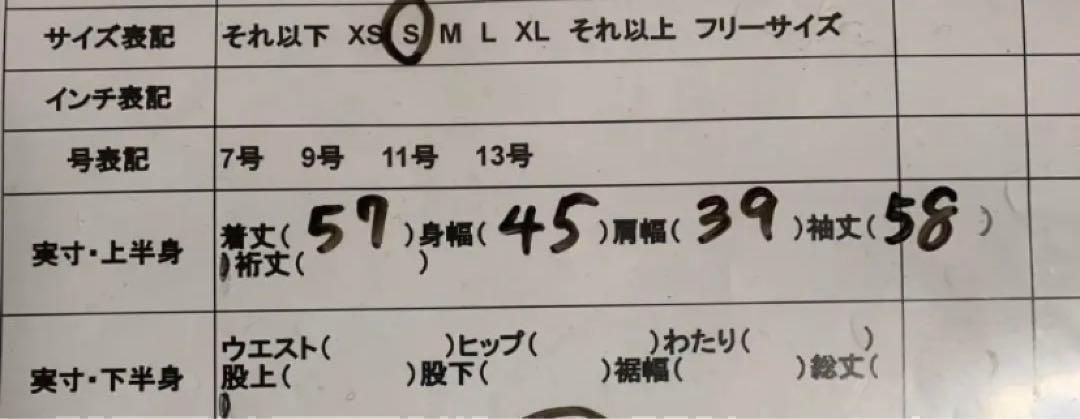 サイズ表記 それ以下 XS S M L XL それ以上 フリーサイズ
インチ表記
号表記 7号 9号 11号 13号
実寸・上半身
着丈( 57 )身幅( 45 )肩幅( 39 )袖丈( 58 )
)裄丈( )
実寸・下半身
ウエスト( )ヒップ( )わたり( )
股上( )股下( )裾幅( )総丈(
)